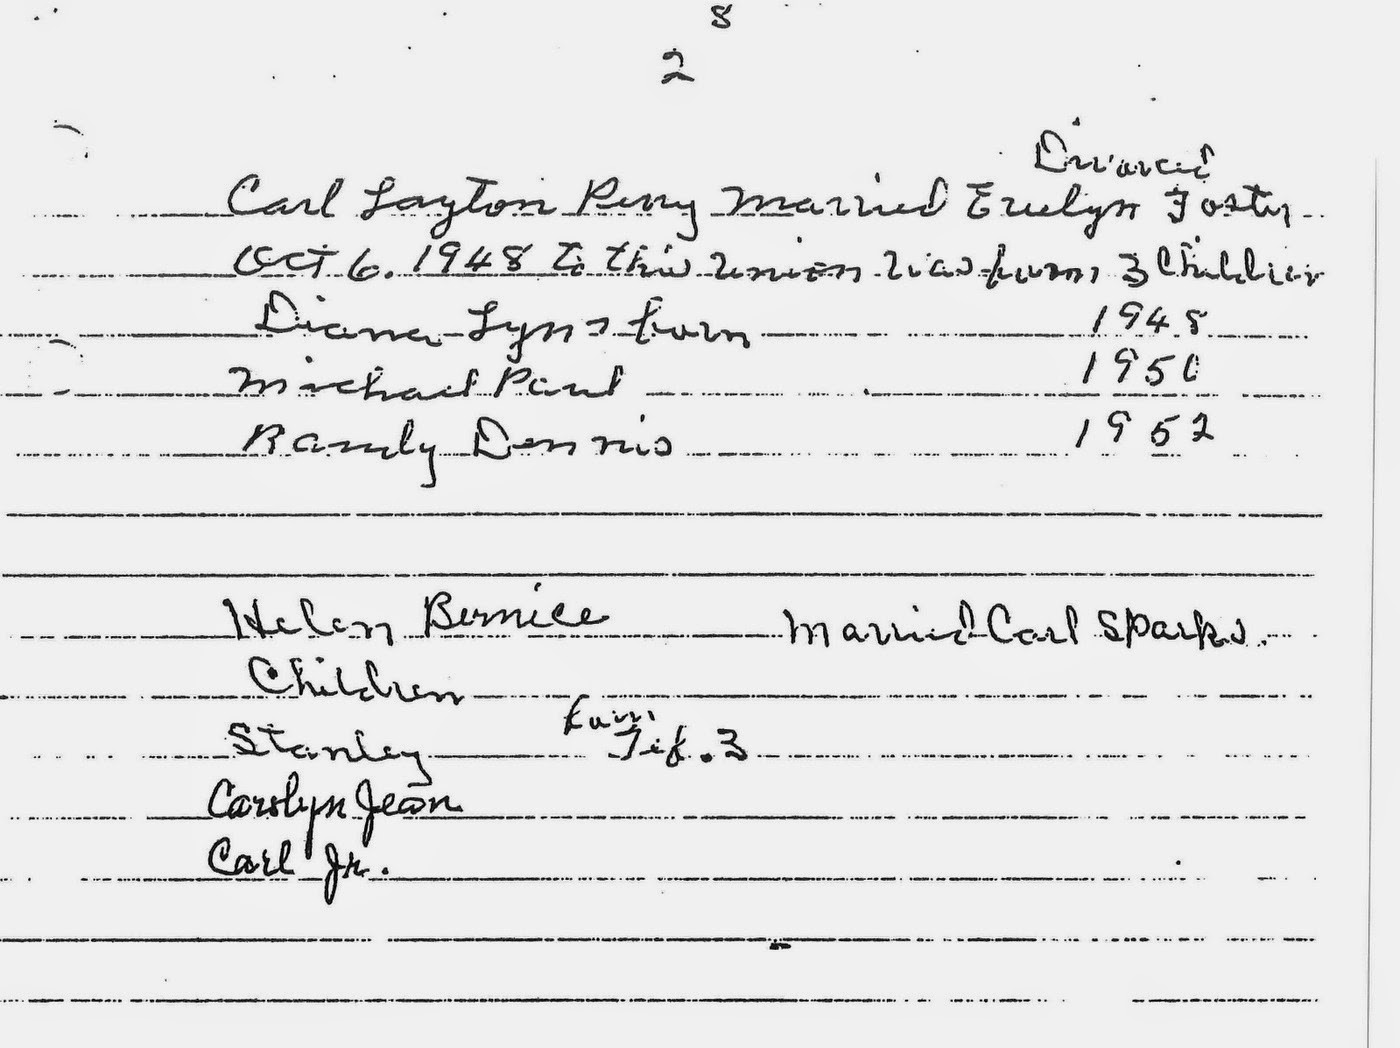 8
2
Divorced
Carl Layton Perry Married Evelyn Foster
Oct 6. 1948 to this union was born 3 Children
Diana Lynn born 1948
Michael Paul 1950
Randy Dennis 1952
Helen Bernice Married Carl Sparks.
Children
born
Stanley Feb. 3
Carolyn Jean
Carl Jr.